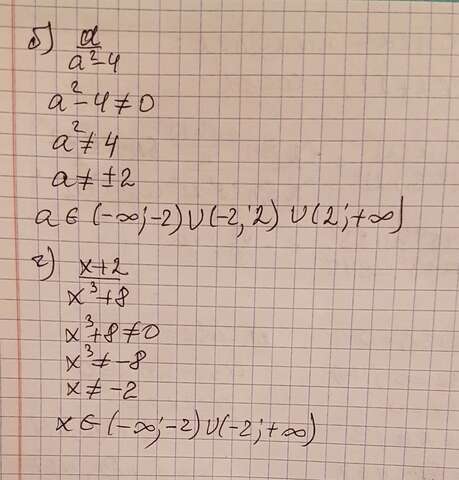 б) a
a²-4
a²-4≠0
a²≠4
a≠±2
a∈(-∞;-2)∪(-2;2)∪(2;+∞)
г) x+2
x³+8
x³+8≠0
x³≠-8
x≠-2
x∈(-∞;-2)∪(-2;+∞)